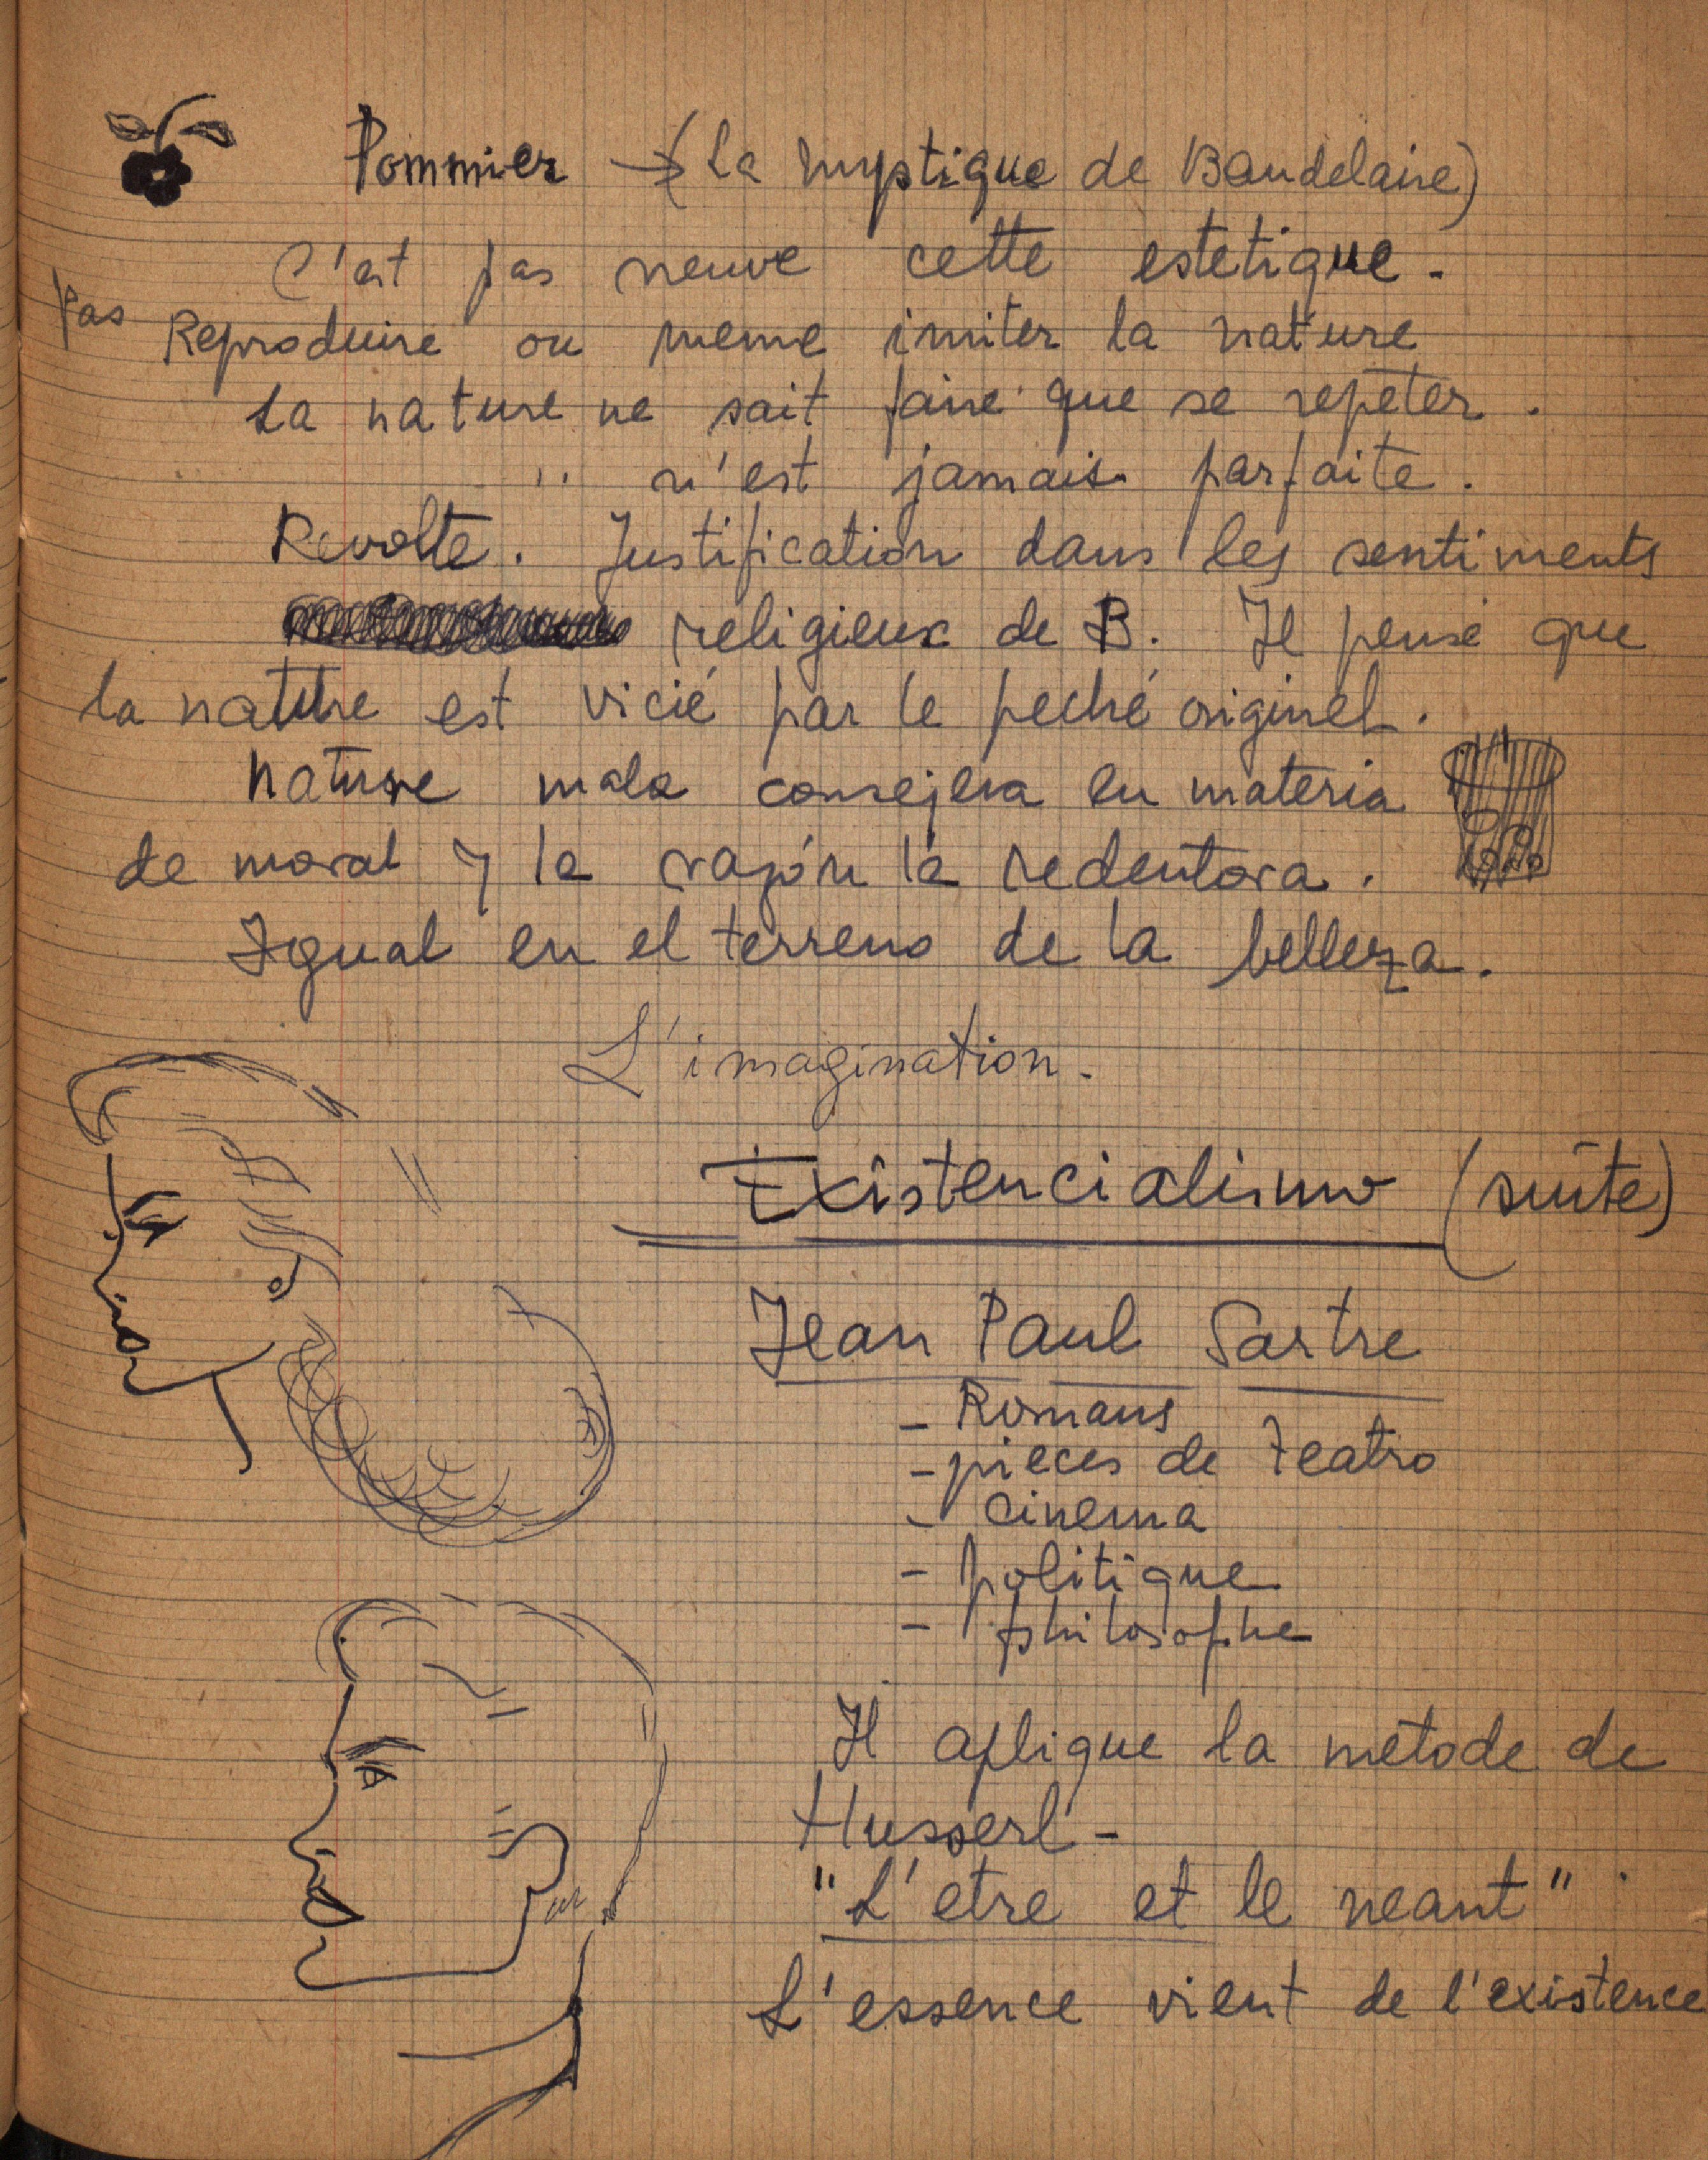 Pommier → (La mystique de Baudelaire)
C'est pas neuve cette estetique.
Pas Reproduire ou meme imiter la nature
La nature ne sait faire que se repeter.
" n'est jamais parfaite.
Revolte. Justification dans les sentiments
religieux de B. Il pense que
la nature est vicié par le peché originel.
Nature mala consejera en materia
de moral y la razón la redentora.
Igual en el terreno de la belleza.
L'imagination.
Existencialismo (suite)
Jean Paul Sartre
- Romans
- pieces de teatro
- cinema
- politique
- philosophe
Il aplique la metode de
Husserl -
"L'etre et le neant"
L'essence vient de l'existence